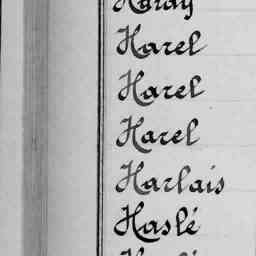 Hardy
Harel
Harel
Harel
Harlais
Haslé